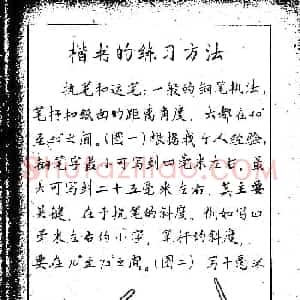 楷书的练习方法
执笔和运笔：一般的钢笔执法，
笔杆和纸面的距离角度，大都在40°
至50°之间。(图一)根据我个人经验，
钢笔字最小可写到四毫米左右，最
大可写到二十五毫米左右，其主要
关键，在于执笔的斜度，例如写四
毫米左右的小字，笔杆的斜度，
要在70°至75°之间。(图二)写十毫米